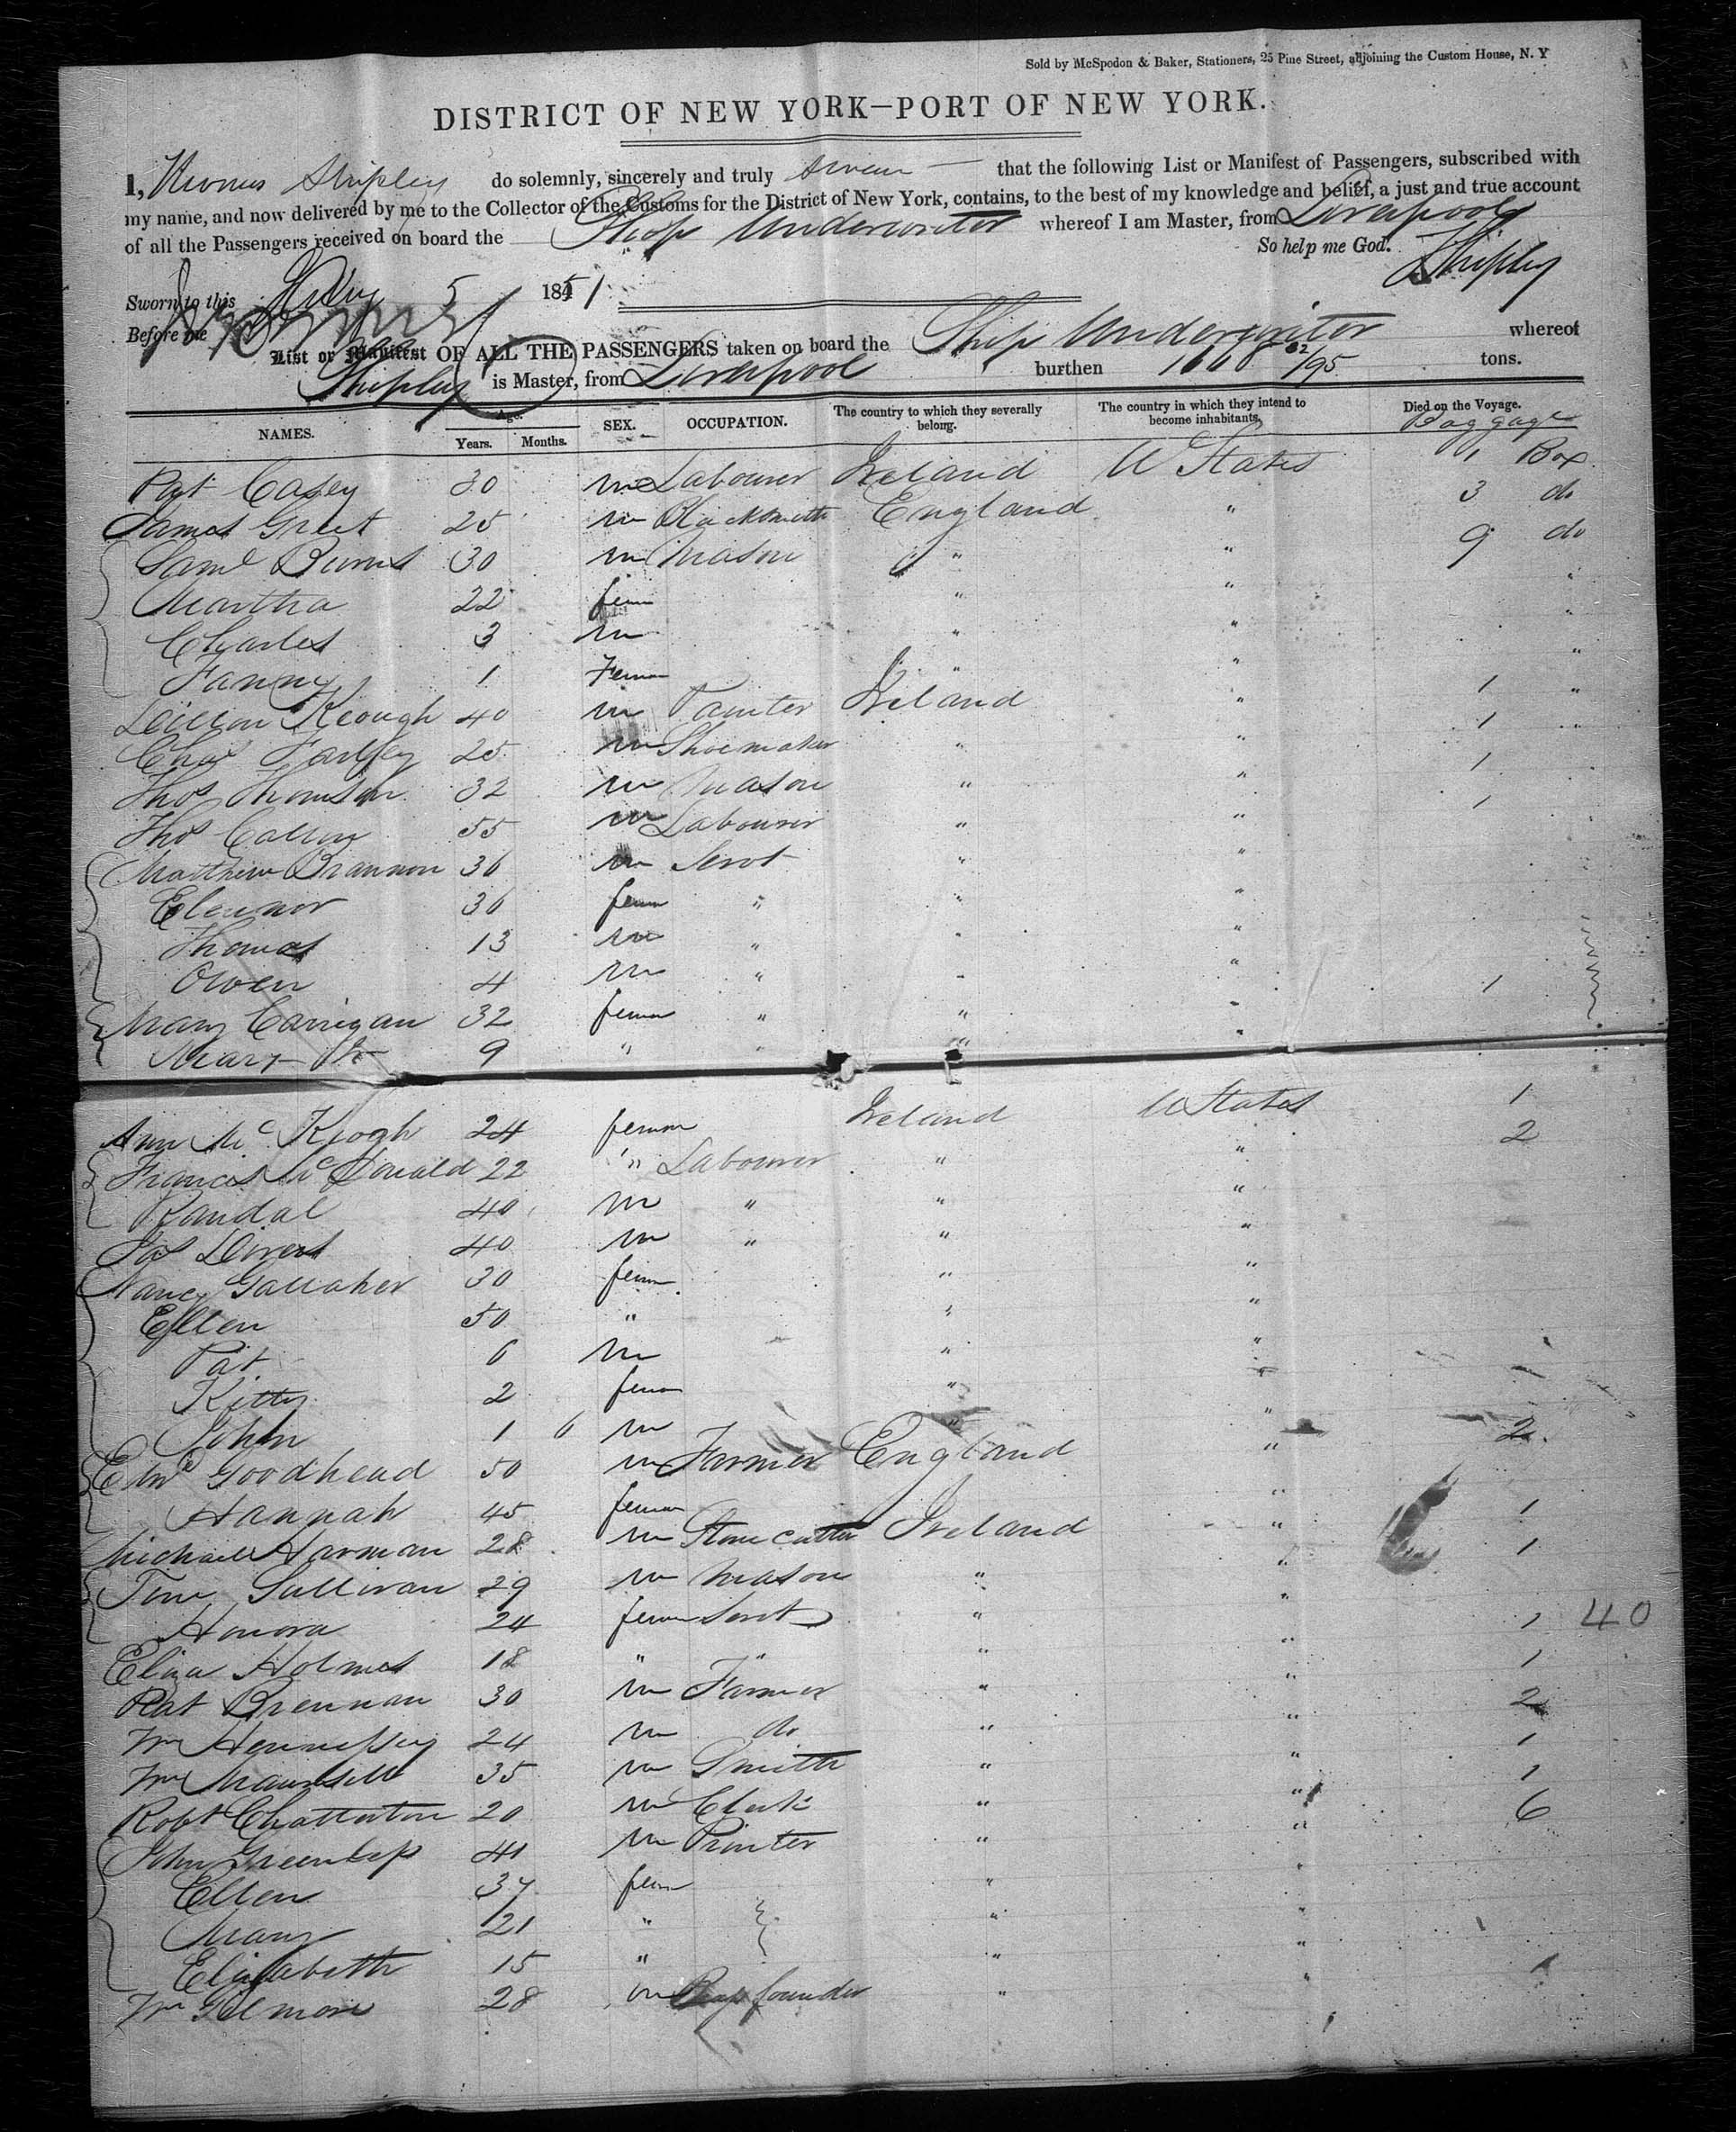 Sold by McSpedon & Baker, Stationers, 25 Pine Street, adjoining the Custom House, N. Y
DISTRICT OF NEW YORK—PORT OF NEW YORK.
I, Shipley do solemnly, sincerely and truly swear that the following List or Manifest of Passengers, subscribed with
my name, and now delivered by me to the Collector of the Customs for the District of New York, contains, to the best of my knowledge and belief, a just and true account
of all the Passengers received on board the Ship Underwriter whereof I am Master, from Liverpool
So help me God.
Shipley
Sworn to this 5 1851
Before me
List or Manifest OF ALL THE PASSENGERS taken on board the Ship Underwriter whereof
Shipley is Master, from Liverpool burthen 1168 82/95 tons.
NAMES. Age. Years. Months. SEX. OCCUPATION. The country to which they severally belong. The country in which they intend to become inhabitants. Died on the Voyage. Baggage
Pat Casey 30 m Labourer Ireland U States 1 Box
James Greet 25 m Blacksmith England " 3 do
Saml Burns 30 m Mason " " 9 do
Martha 22 fem " " "
Charles 3 m " " "
Fanny 1 Fem " " "
Keough 40 m Painter Ireland " 1 "
Chas Farlley 25 m Shoemaker " " 1 "
Thos Thomson 32 m Mason " " 1
Thos 55 m Labourer " " 1
Matthew Brannon 36 m Servt " "
Eleanor 36 fem " " "
Thomas 13 m " " "
Owen 4 m " " "
Mary Carrigan 32 fem " " " 1
Mary Do 9 " " " "
Ann Mc Keogh 24 fem Ireland U States 1
Frances McDonald 22 " Labourer " " 2
Randal 40 m " " "
Jas Divers 40 m " " "
Nancy Gallaher 30 fem " "
Ellen 50 " " "
Pat 6 m " "
Kitty 2 fem " "
John 1 6 m " "
Edwd Goodhead 50 m Farmer England " 2
Hannah 45 fem "
Michael Harman 28 m Stone cutter Ireland " 1
Tim Sullivan 29 m Mason " " 1
Honora 24 fem Servt " "
Eliza Holmes 18 " " " " 1 40
Pat Brennan 30 m Farmer " " 1
Wm Hennessey 24 m do " " 2
Wm Maunsell 35 m Smith " " 1
Robt Chatterton 20 m Clerk " " 1
John Greenlass 41 m Printer " " 6
Ellen 37 fem " "
Mary 21 " " "
Elizabeth 15 " " "
Wm Gilmore 28 m founder " "